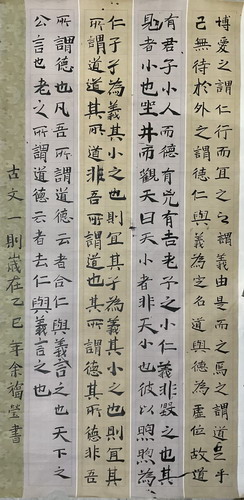 博愛之謂仁行而宜之之謂義由是而之焉之謂道足乎
己無待於外之謂德仁與義為定名道與德為虛位故道
有君子小人而德有兇有吉老子之小仁義非毀之也其
見者小也坐井而觀天曰天小者非天小也彼以煦煦為
仁子子為義其小之也則宜其子為義其小之也則宜其
所謂道道其所道非吾所謂道其所謂德其所德非吾
所謂德也凡吾所謂道德云者合仁與義言之也天下之
公言也老之所謂道德云者去仁與義言之也
古文一則歲在乙巳年余福瑩書